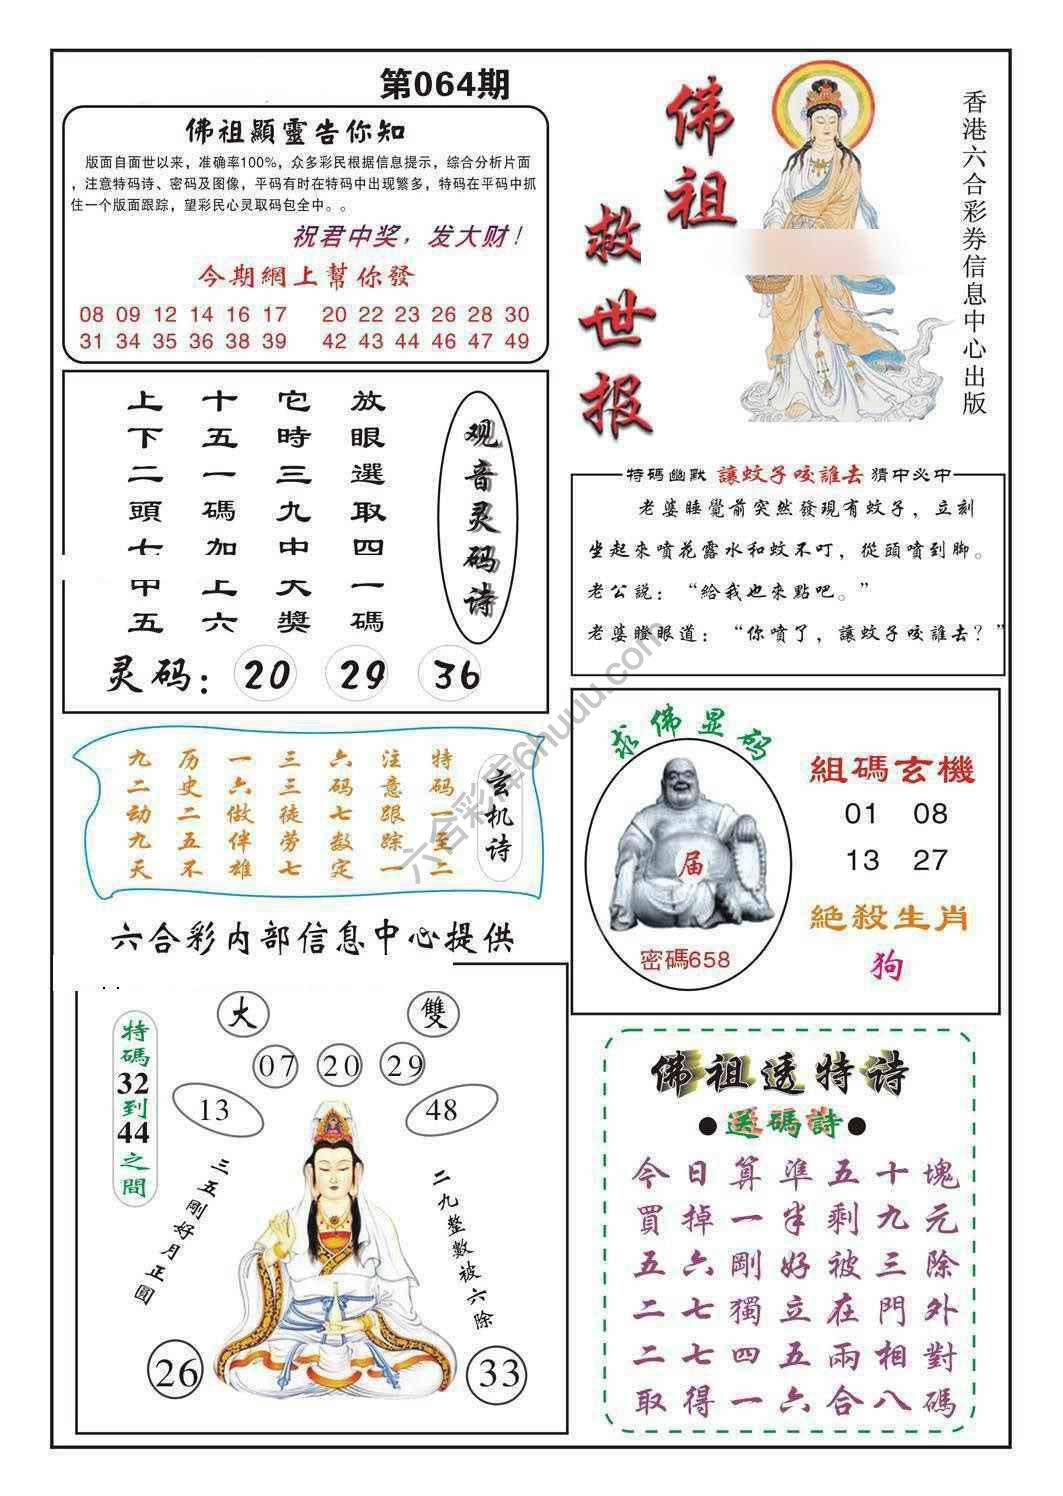 第064期
佛祖顯靈告你知
版面自面世以来，准确率100%，众多彩民根据信息提示，综合分析片面
，注意特码诗、密码及图像，平码有时在特码中出现繁多，特码在平码中抓
住一个版面跟踪，望彩民心灵取码包全中。。
祝君中奖，发大财！
今期網上幫你發
08 09 12 14 16 17 20 22 23 26 28 30
31 34 35 36 38 39 42 43 44 46 47 49
佛祖救世报
香港六合彩券信息中心出版
上十它放
下五時眼
二一三選
頭碼九取
七加中四
甲上大一
五六獎碼
观音灵码诗
灵码：20 29 36
特碼幽默 讓蚊子咬誰去 猜中必中
老婆睡覺前突然發現有蚊子，立刻
坐起來噴花露水和蚊不叮，從頭噴到脚。
老公説：“給我也來點吧。”
老婆瞪眼道：“你噴了，讓蚊子咬誰去？”
九历一三六注特
二史六三码意码
动二做徒七跟一
九五伴劳数踪至
天不雄七定一二
玄机诗
六合彩内部信息中心提供
求佛显码
届
密碼658
組碼玄機
01 08
13 27
絕殺生肖
狗
大 雙
07 20 29
13 48
特碼32到44之間
三五剛好月正圓
二九整數被六除
26 33
佛祖透特诗
●送碼詩●
今日算準五十塊
買掉一半剩九元
五六剛好被三除
二七獨立在門外
二七四五兩相對
取得一六合八碼
六合彩库6huuu.com